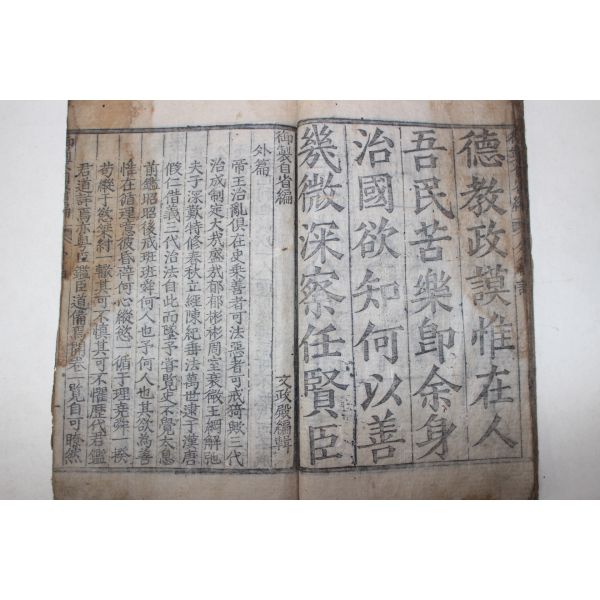 德教政謨惟在人
吾民苦樂即余身
治國欲知何以善
幾微深察任賢臣
御製自省編
外篇
文政殿編輯
帝王治亂俱在史乘善者可法惡者可戒猗歟三代
治成制定大哉盛哉郁郁彬彬周室衰微王綱解弛
夫子深歎特修春秋立經陳紀垂法萬世逮于漢唐
假仁借義三代治法自此而墜予嘗覽史不覺太息
前鑑昭昭後戒班班舜何人也予何人也其欲為善
惟在循理噫彼昏辟何心縱慾一循于理堯舜一揆
苟縱于慾桀紂一轍其可不慎其可不懼歷代君鑑
君道詳焉亦粤臣鑑臣道備焉開卷一覽自可瞭然